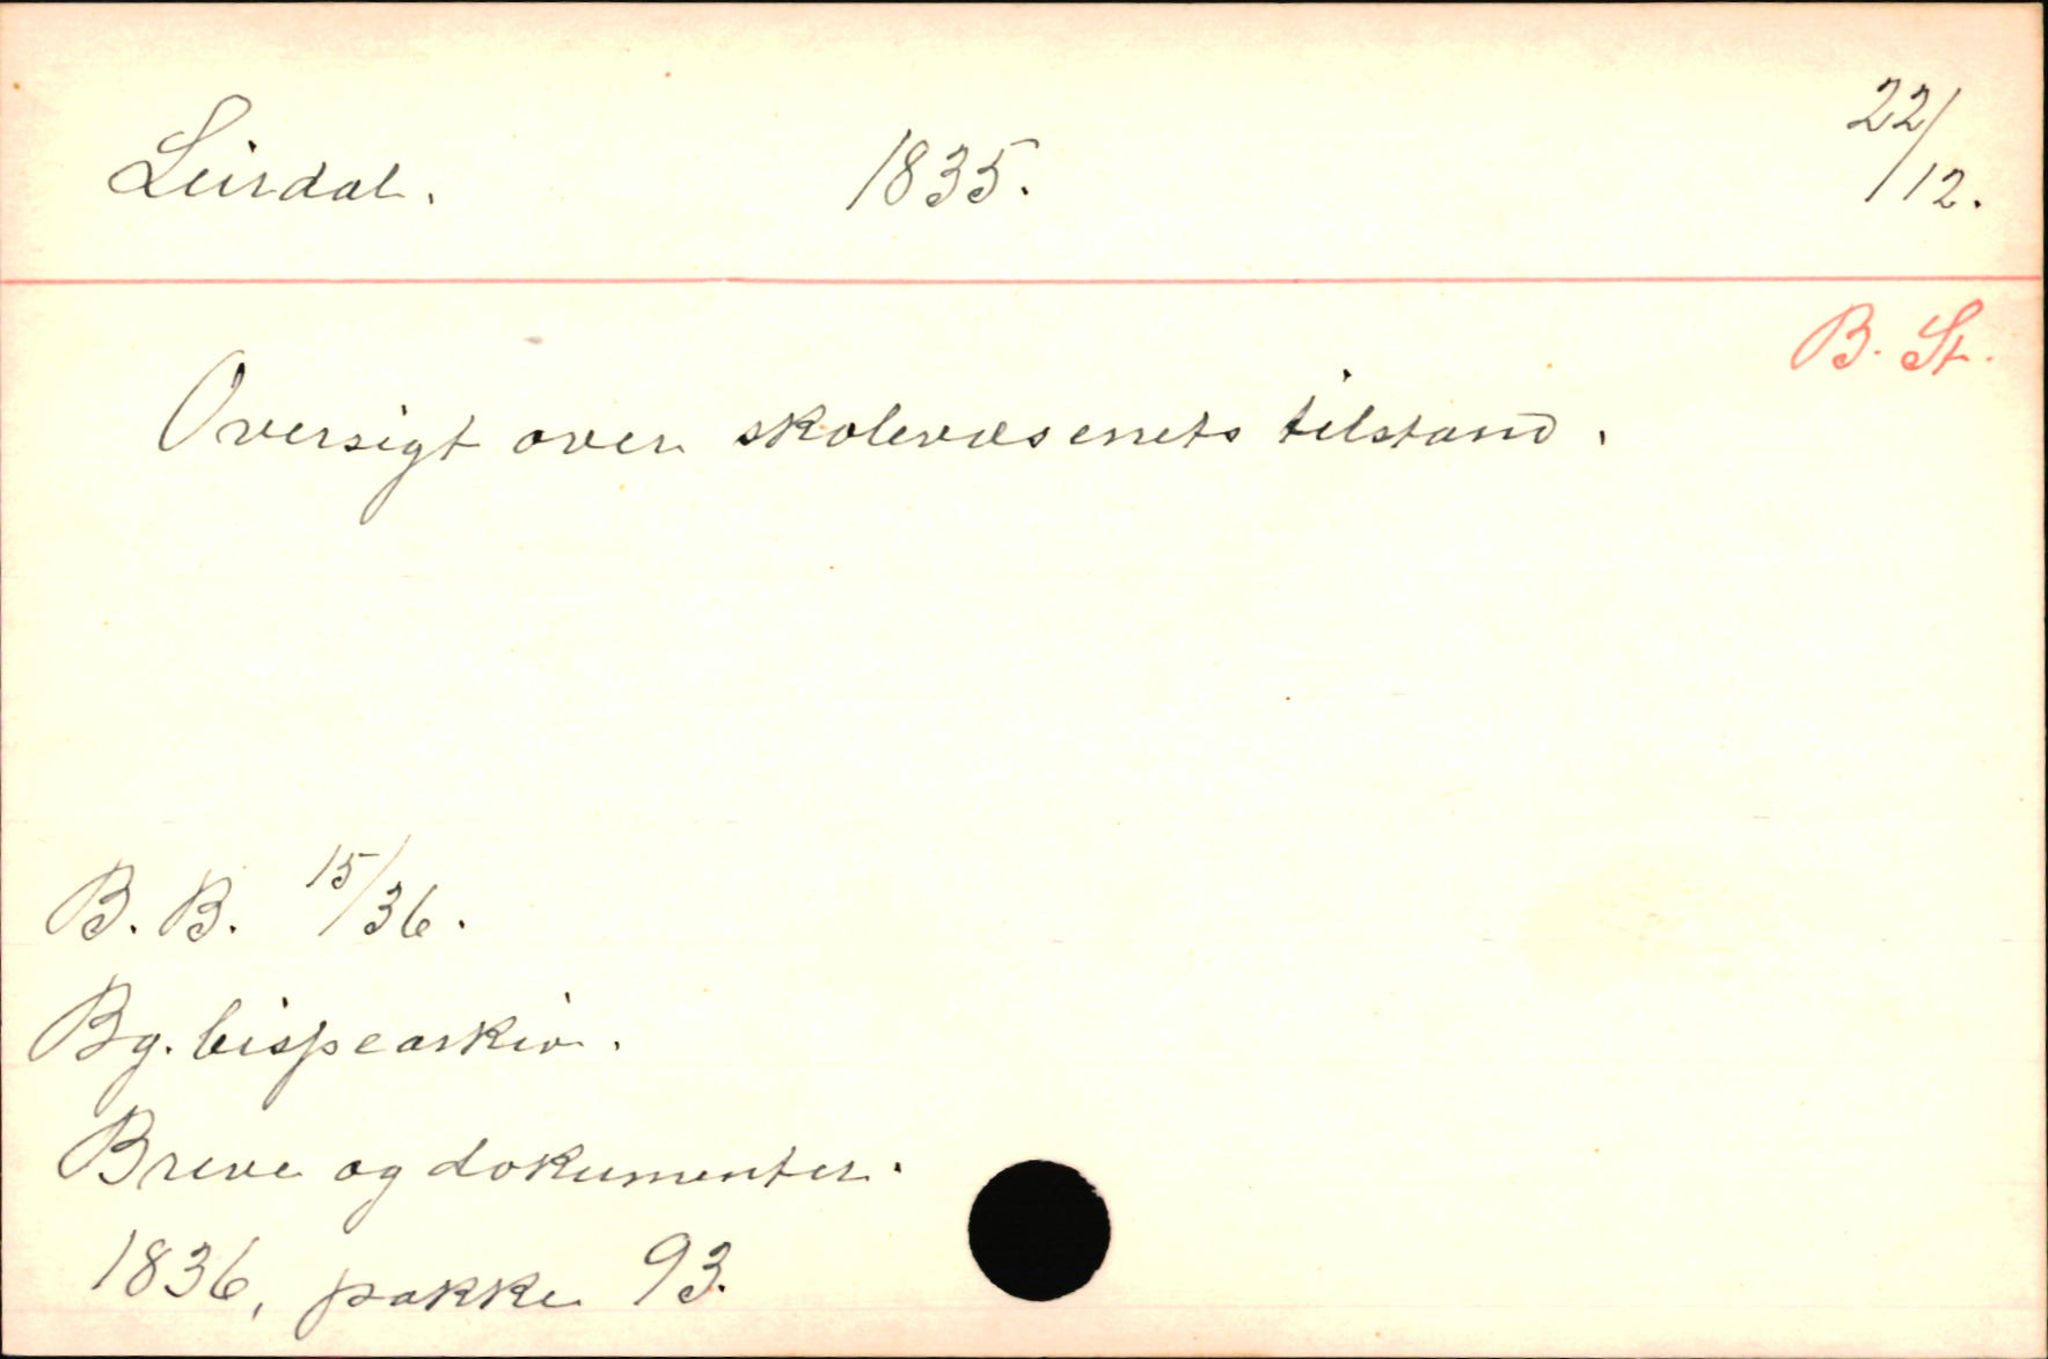 Leirdal. 1835. 22/12.
B. St.
Oversigt over skolevæsenets tilstand.
B. B. 15/36.
Bg. bispearkiv.
Breve og dokumenter.
1836, pakke 93.